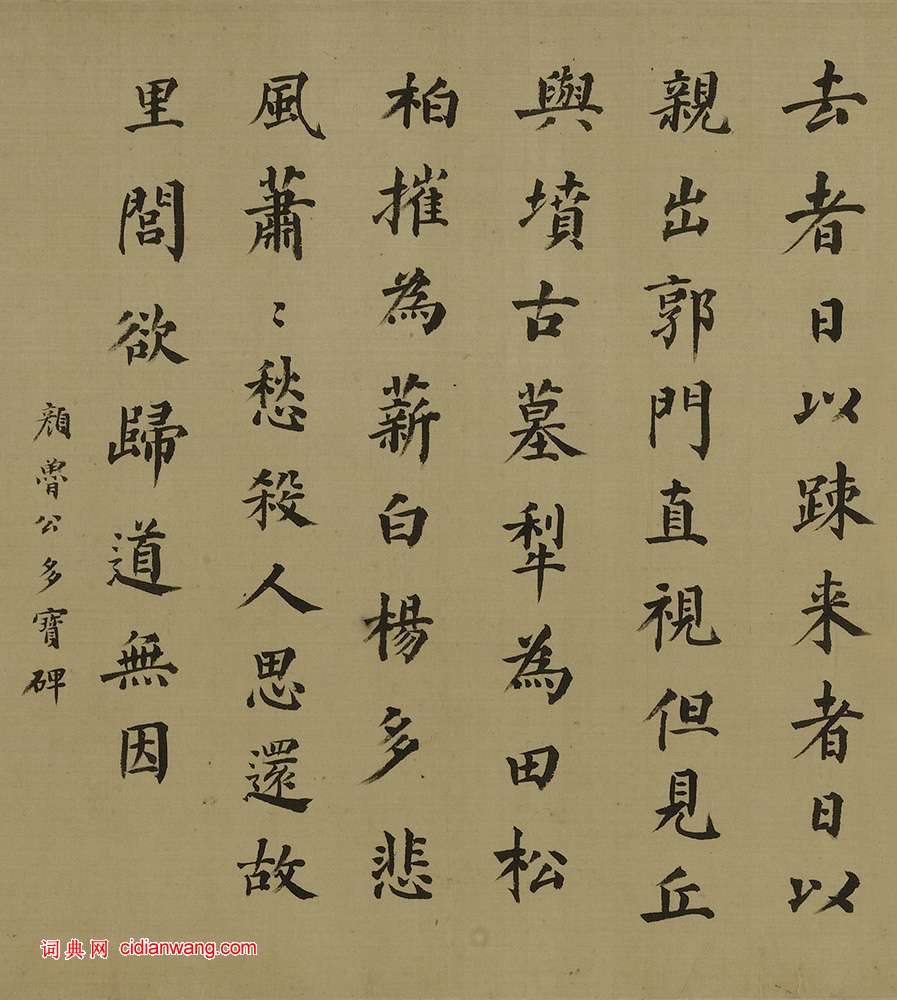 去者日以踈来者日以
親出郭門直視但見丘
與墳古墓犁為田松
柏摧為薪白楊多悲
風蕭〻愁殺人思還故
里閭欲歸道無因
顔魯公多寶碑
词典网 cidianwang.com